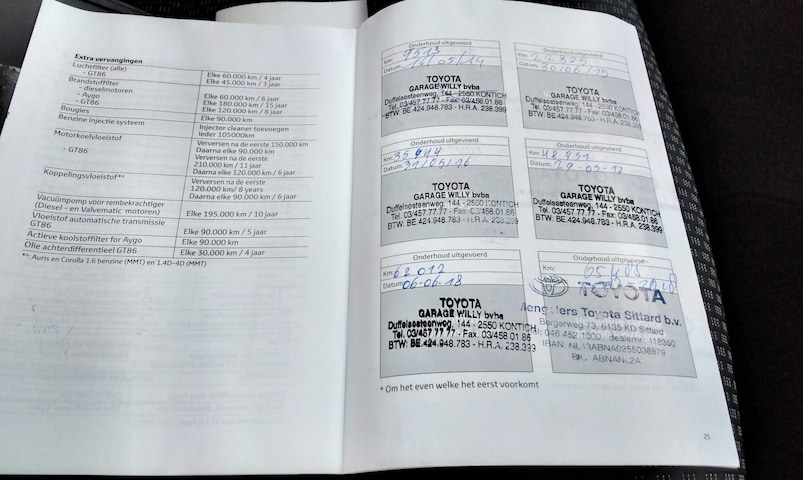 Extra vervangingen
Luchtfilter (alle)
- GT86
Elke 60.000 km / 4 jaar
Elke 45.000 km / 3 jaar
Brandstoffilter
- dieselmotoren
- Aygo
- GT86
Elke 60.000 km / 6 jaar
Elke 180.000 km / 15 jaar
Elke 120.000 km / 8 jaar
Bougies
Elke 90.000 km
Benzine injectie systeem
Injector cleaner toevoegen
Ieder 105000km
Motorkoelvloeistof
- GT86
Verversen na de eerste 150.000 km
Daarna elke 90.000 km
Verversen na de eerste
210.000 km / 11 jaar
Daarna elke 120.000 km / 6 jaar
Koppelingsvloeistof*¹
Verversen na de eerste
120.000 km/ 8 years
Daarna elke 90.000 km / 6 jaar
Vacuümpomp voor rembekrachtiger
(Diesel - en Valvematic motoren)
Elke 195.000 km / 10 jaar
Vloeistof automatische transmissie
GT86
Elke 90.000 km / 5 jaar
Actieve koolstoffilter for Aygo
Elke 90.000 km
Olie achterdifferentieel GT86
Elke 30.000 km / 4 jaar
*¹: Auris en Corolla 1.6 benzine (MMT) en 1.4D-4D (MMT)
Onderhoud uitgevoerd
Km: 9513
Datum:
TOYOTA
GARAGE WILLY bvba
Duffelsesteenweg, 144 - 2550 KONTICH
Tel. 03/457.77.77 - Fax: 03/458.01.86
BTW: BE.424.948.783 - H.R.A. 238.399
Onderhoud uitgevoerd
Km:
Datum: 30/06/15
TOYOTA
GARAGE WILLY bvba
Duffelsesteenweg, 144 - 2550 KONTICH
Tel. 03/457.77.77 - Fax: 03/458.01.86
BTW: BE.424.948.783 - H.R.A. 238.399
Onderhoud uitgevoerd
Km: 35944
Datum: 31/05/16
TOYOTA
GARAGE WILLY bvba
Duffelsesteenweg, 144 - 2550 KONTICH
Tel. 03/457.77.77 - Fax: 03/458.01.86
BTW: BE.424.948.783 - H.R.A. 238.399
Onderhoud uitgevoerd
Km: 48951
Datum: 29-05-17
TOYOTA
GARAGE WILLY bvba
Duffelsesteenweg, 144 - 2550 KONTICH
Tel. 03/457.77.77 - Fax: 03/458.01.86
BTW: BE.424.948.783 - H.R.A. 238.399
Onderhoud uitgevoerd
Km: 62012
Datum: 06-06-18
TOYOTA
GARAGE WILLY bvba
Duffelsesteenweg, 144 - 2550 KONTICH
Tel. 03/457.77.77 - Fax. 03/458.01.86
BTW: BE.424.948.783 - H.R.A. 238.399
Onderhoud uitgevoerd
Km:
TOYOTA
Toyota Sittard b.v.
Bergerweg 73, 6135 KD Sittard
Tel. 046 452 1000, dealernr.: 118360
* Om het even welke het eerst voorkomt
25